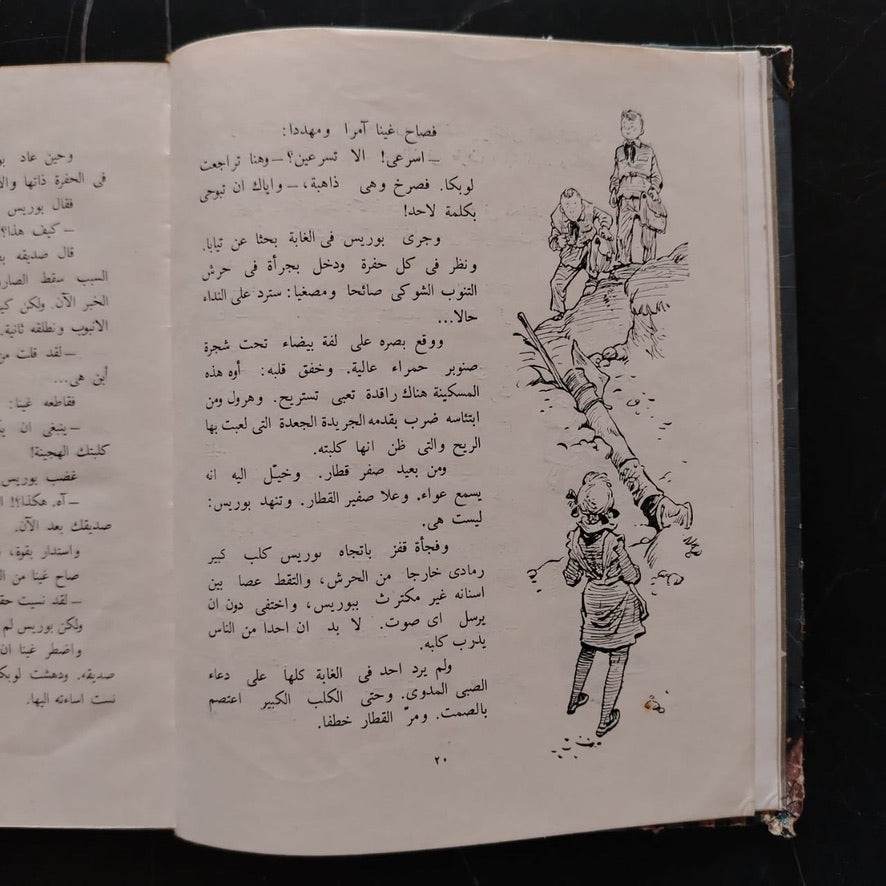 فصاح غينا آمرا ومهددا:
ـ اسرعى! الا تسرعين؟ ـ وهنا تراجعت
لوبكا. فصرخ وهى ذاهبة، ـ واياك ان تبوحى
بكلمة لاحد!
وجرى بوريس فى الغابة بحثا عن تيابا.
ونظر فى كل حفرة ودخل بجرأة فى حرش
التنوب الشوكى صائحا ومصغيا: سترد على النداء
حالا...
ووقع بصره على لفة بيضاء تحت شجرة
صنوبر حمراء عالية. وخفق قلبه: أوه هذه
المسكينة هناك راقدة تعبى تستريح. وهرول ومن
ابتئاسه ضرب بقدمه الجريدة الجعدة التى لعبت بها
الريح والتى ظن انها كلبته.
ومن بعيد صفر قطار. وخيّل اليه انه
يسمع عواء. وعلا صفير القطار. وتنهد بوريس:
ليست هى.
وفجأة قفز باتجاه بوريس كلب كبير
رمادى خارجا من الحرش، والتقط عصا بين
اسنانه غير مكترث ببوريس، واختفى دون ان
يرسل اى صوت. لا بد ان احدا من الناس
يدرب كلبه.
ولم يرد احد فى الغابة كلها على دعاء
الصبى المدوى. وحتى الكلب الكبير اعتصم
بالصمت. ومرّ القطار خطفا.
٢٠
وحين عاد
فى الحفرة ذاتها
فقال بوريس
ـ كيف هذا؟
قال صديقه
السبب سقط
الخبر الآن. ولكن
الانبوب ونطلقه ثانية.
ـ لقد قلت
أين هى...
فقاطعه غينا:
ـ ينبغى ان
كلبتك الهجينة!
غضب بوريس
ـ آه. هكذا؟!
صديقك بعد الآن.
واستدار بقوة،
صاح غينا من
ـ لقد نسيت
ولكن بوريس لم
واضطر غينا ان
صديقه. ودهشت
نست اساءته اليها.